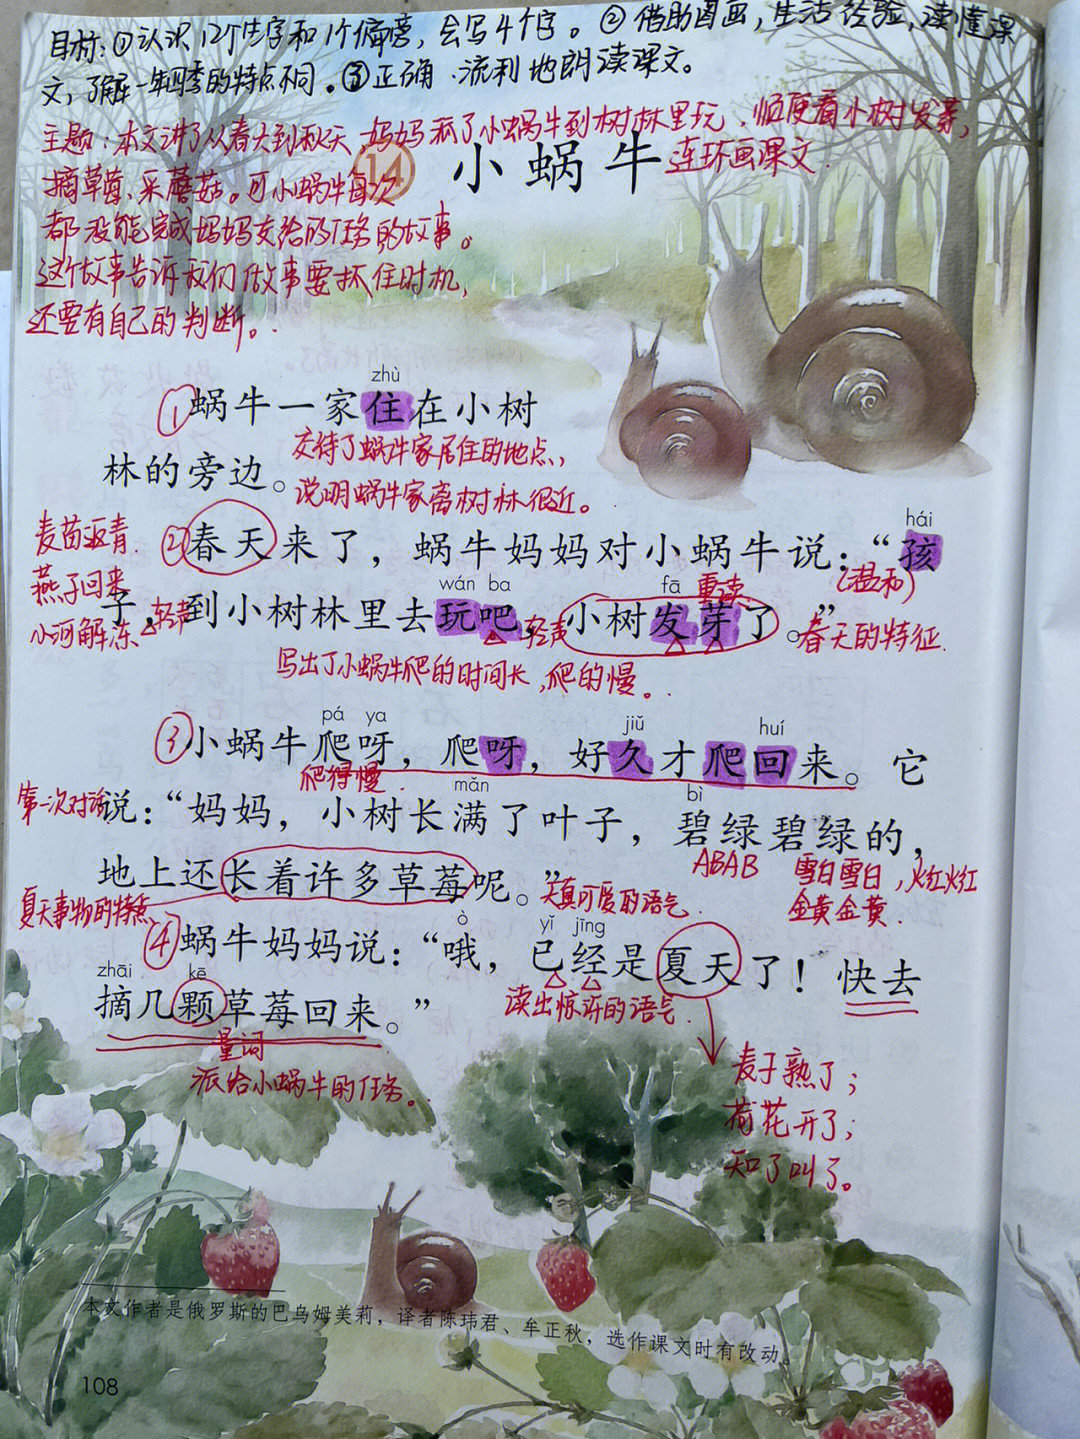 目标：①认识12个生字和1个偏旁，会写4个字。②借助图画，生活经验，读懂课
文，了解一年四季的特点不同。③正确、流利地朗读课文。
主题：本文讲了从春天到秋天，妈妈让小蜗牛到树林里玩，顺便看小树发芽，
摘草莓、采蘑菇。可小蜗牛每次
都没能完成妈妈交给的任务的故事。
这个故事告诉我们做事要抓住时机，
还要有自己的判断。
14 小蜗牛
连环画课文
zhù
①蜗牛一家住在小树
林的旁边。
交待了蜗牛家居住的地点，
说明蜗牛家离树林很近。
麦苗返青
燕子回来
小河解冻
hái
②春天来了，蜗牛妈妈对小蜗牛说：“孩
wán ba fā 重读 （温和）
子，到小树林里去玩吧，小树发芽了。”
轻声
轻声
春天的特征
写出了小蜗牛爬的时间长，爬的慢。
pá ya jiǔ huí
③小蜗牛爬呀，爬呀，好久才爬回来。它
爬得慢
第一次对话
mǎn bì
说：“妈妈，小树长满了叶子，碧绿碧绿的，
ABAB 雪白雪白，火红火红
金黄金黄
地上还长着许多草莓呢。”
天真可爱的语气
夏天事物的特点
ò yǐ jīng
④蜗牛妈妈说：“哦，已经是夏天了！快去
zhāi kē
摘几颗草莓回来。”
读出惊讶的语气
量词
派给小蜗牛的任务。
麦子熟了；
荷花开了；
知了叫了。
本文作者是俄罗斯的巴乌姆美莉，译者陈玮君、牟正秋，选作课文时有改动。
108